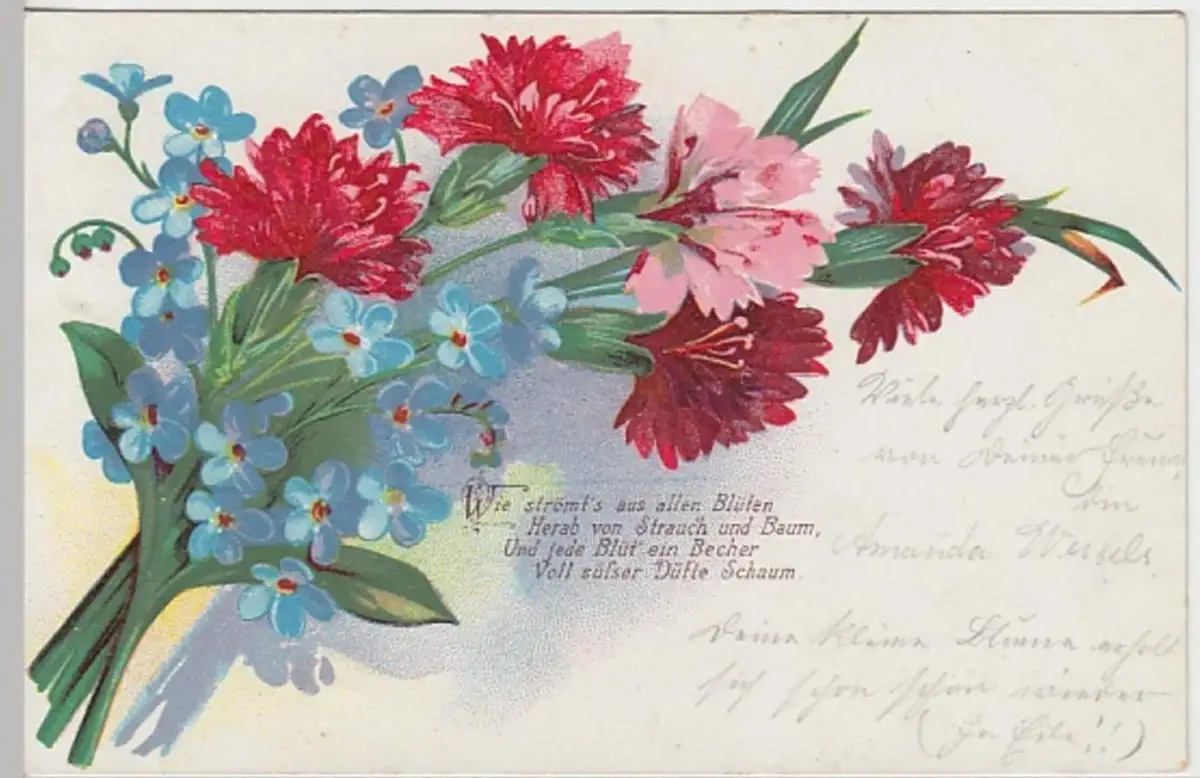 Wie strömt's aus allen Blüten
Herab von Strauch und Baum,
Und jede Blüt' ein Becher
Voll süßser Düfte Schaum.
Viele herzl. Grüße
von Deiner Freun
din
Amanda Wessels
Deine kleine Blume erholt
sich schon schön wieder
(In Eile!!)